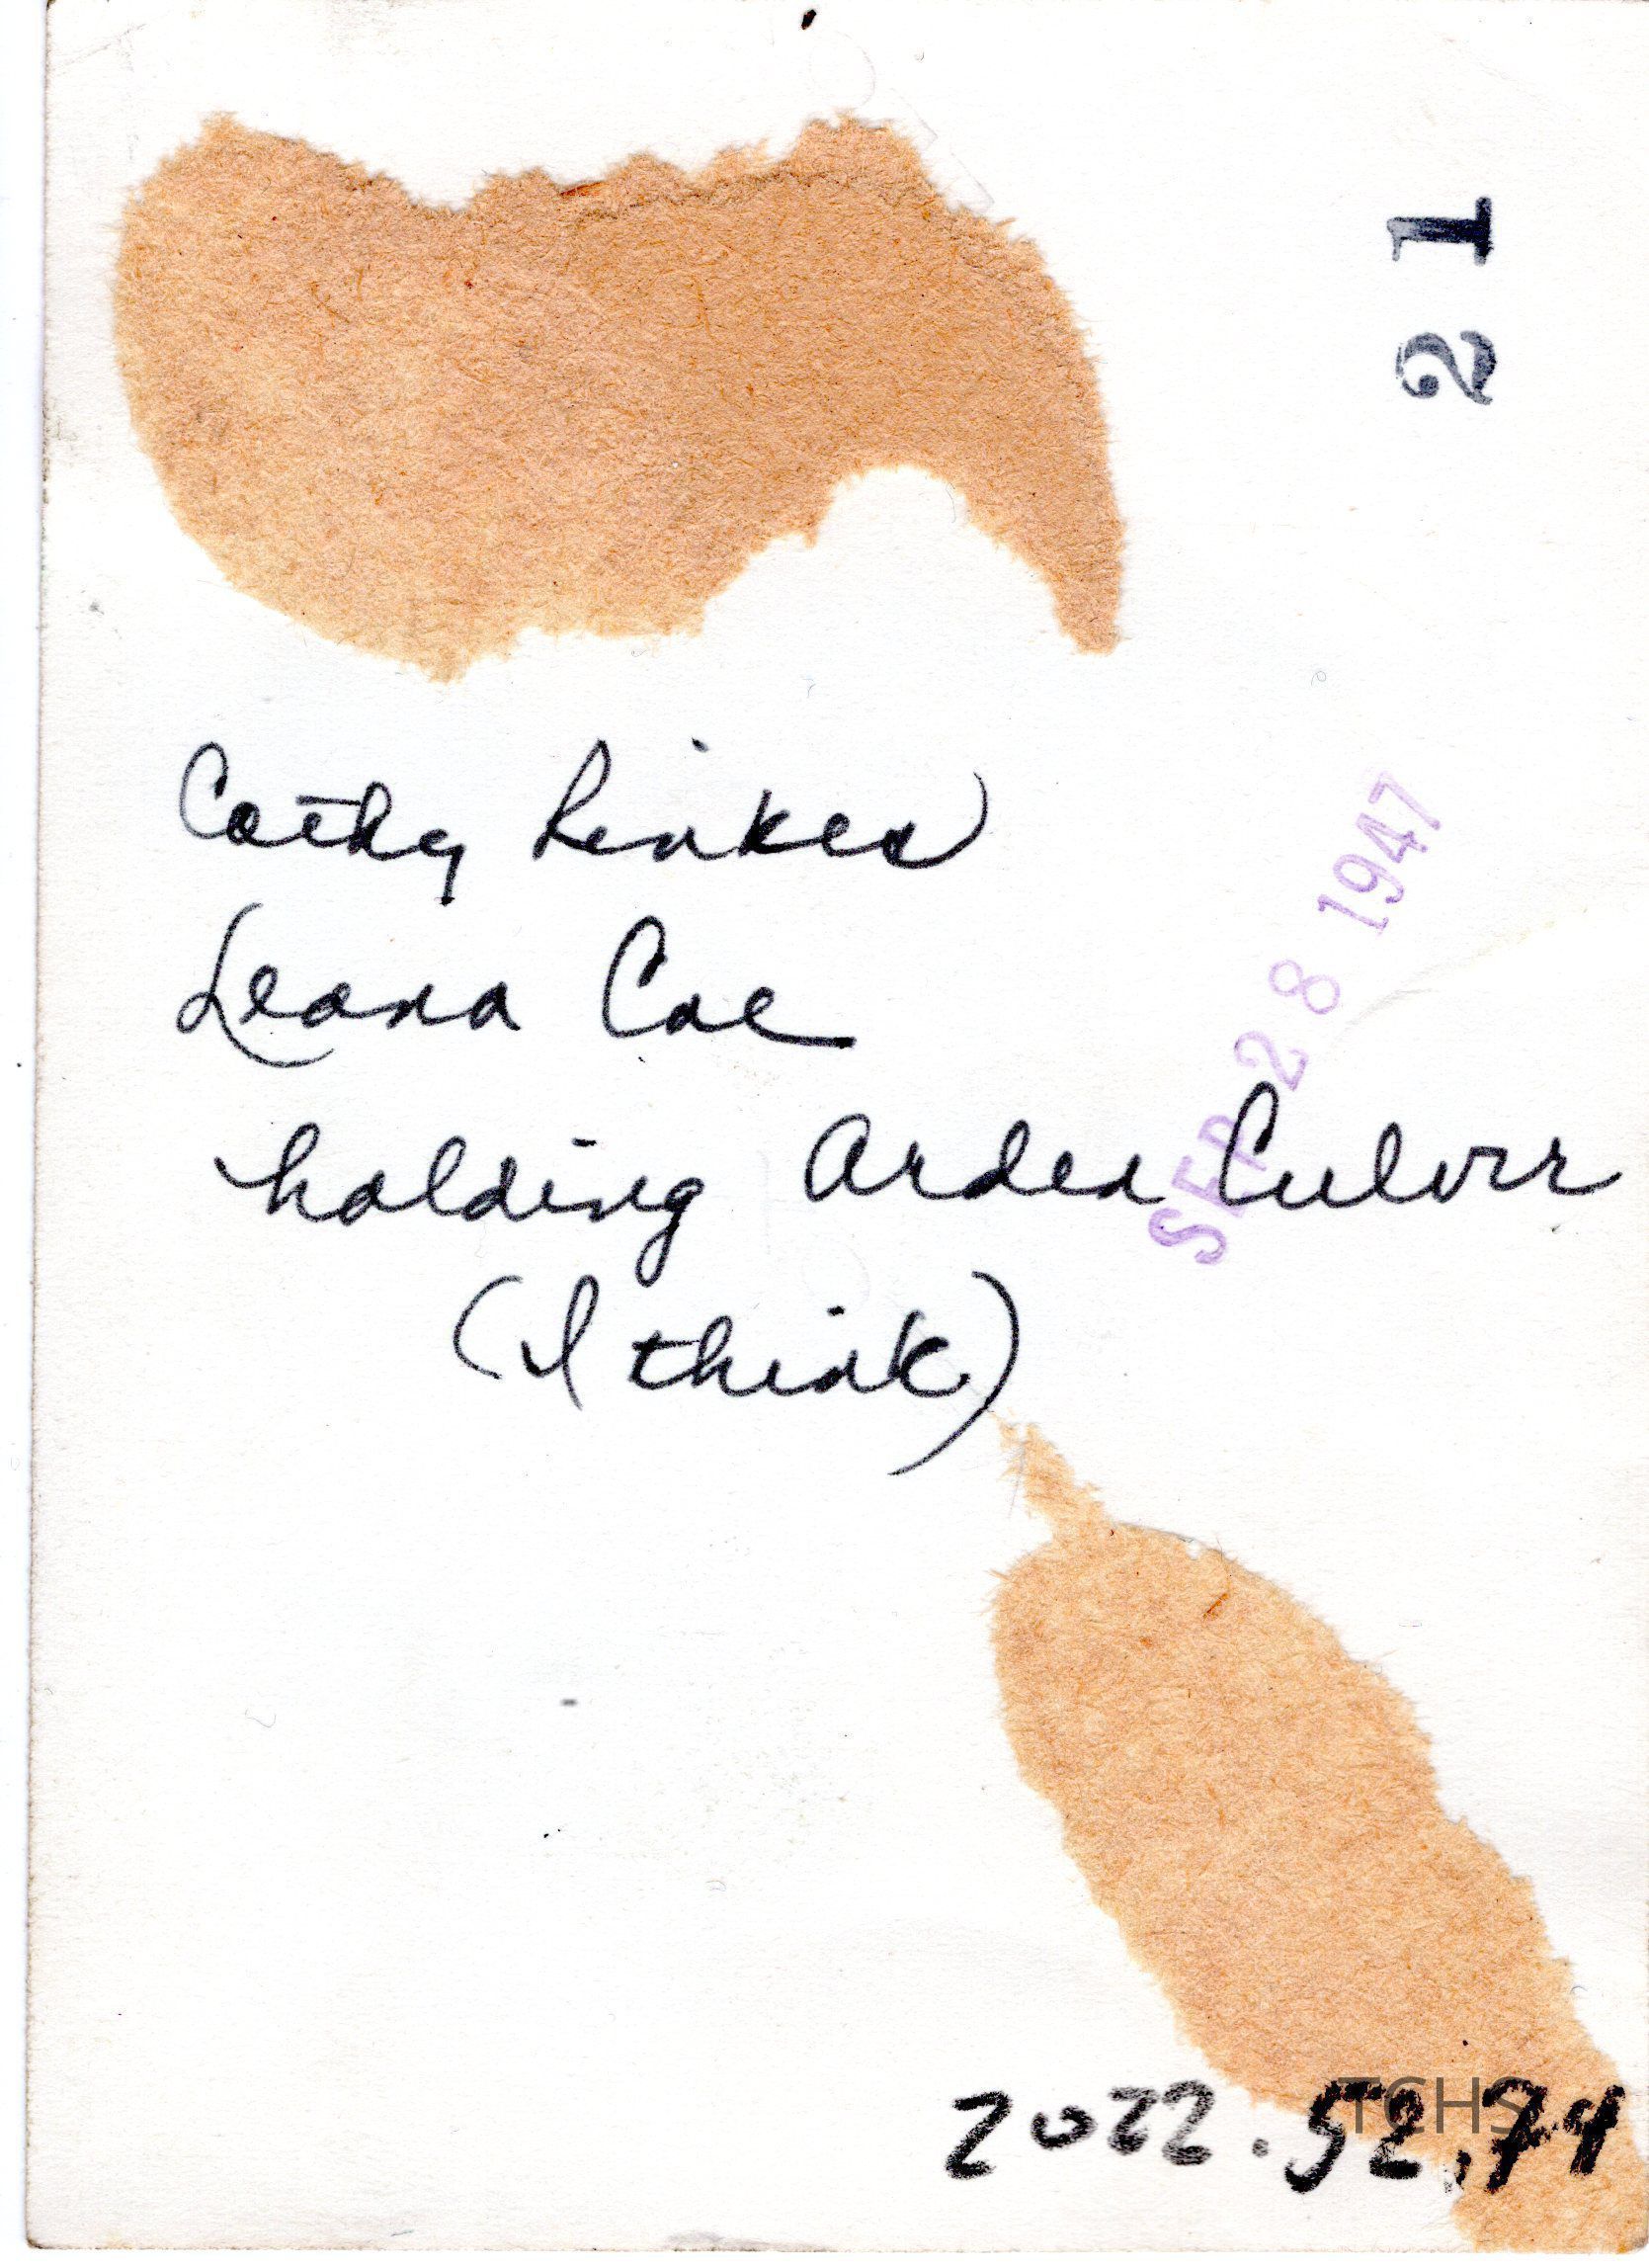 21
Cathy Linken
Leana Coe
SEP 28 1947
holding Arden Culver
(I think)
TCHS
2022.52.74